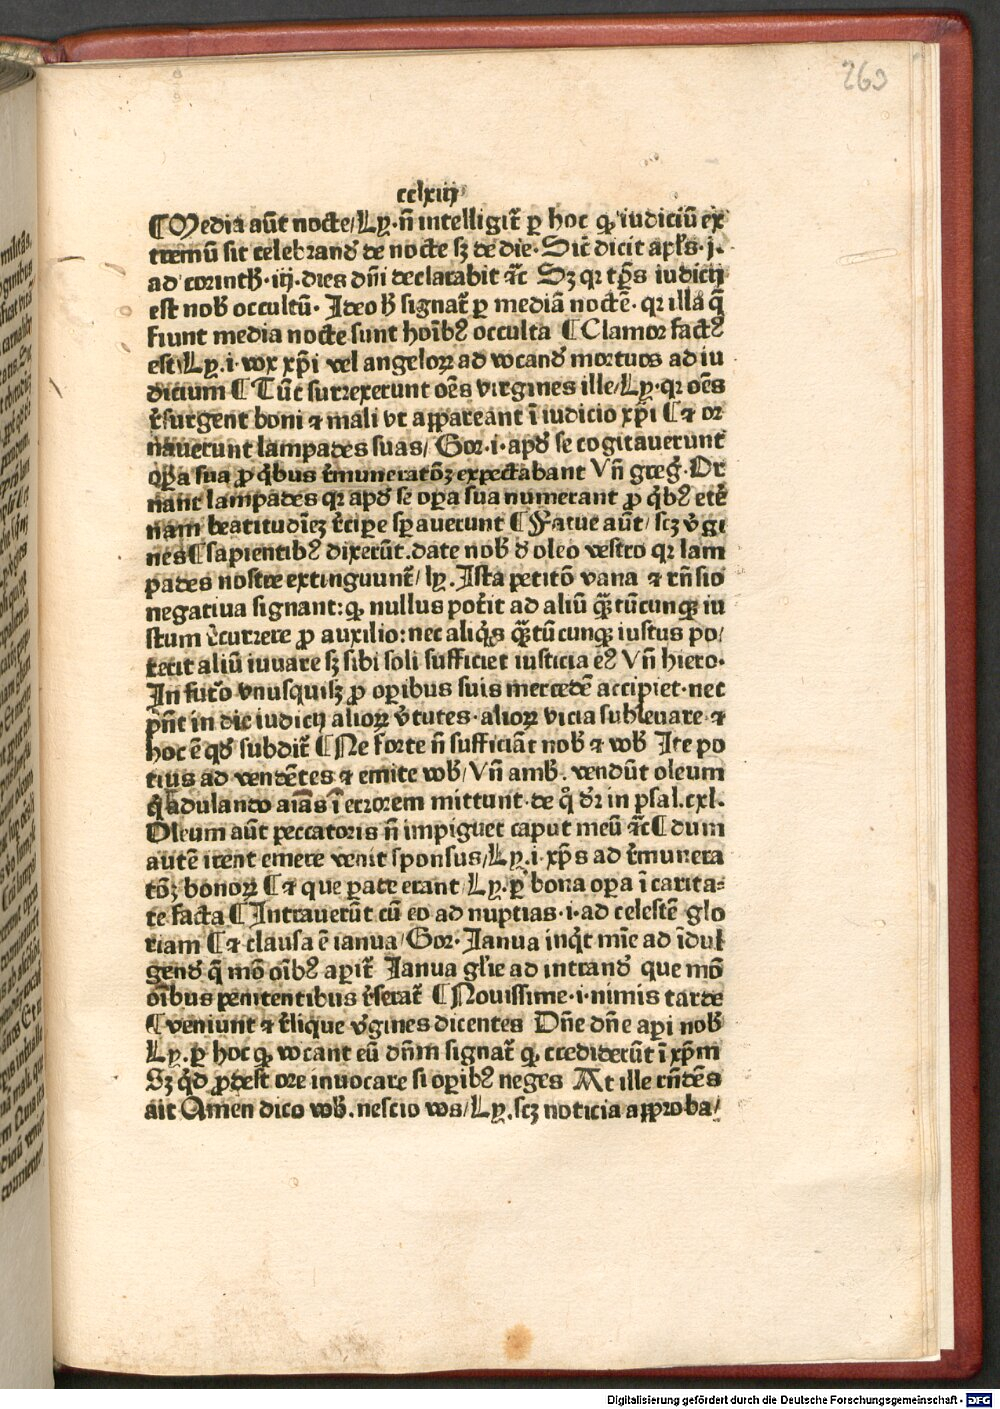 263
cclxiij
¶ Media aūt nocte/ Ly. n̄ intelligit᷑ ꝑ hoc ꝙ iudiciū ex
tremū sit celebrand᷑ de nocte sꝫ de die. Sic̄ dicit apl's. j.
ad corinth᷑. iij. dies dn̄i declarabit ⁊c̄ Sꝫ qꝛ tp̄s iudicij
est nob᷑ occultū. Ideo h᷑ signat᷑ ꝑ mediā noctē. qꝛ illa q̄
fiunt media nocte sunt hoīb᷒ occulta ¶ Clamor fact᷒
est/ Ly. i. vox xp̄i vel angeloꝝ ad vocand᷑ mortuos ad iu
dicium ¶ Tūc surrexerunt oēs virgines ille/ Ly. qꝛ oēs
r᷑surgent boni ⁊ mali vt appareant ī iudicio xp̄i ¶ ⁊ or
nauerunt lampades suas/ Gor. i. apd᷑ se cogitauerunt
oꝑa sua ꝓ qͥbus r᷑muneratōꝫ expectabant Vn̄ greg᷑. Or
nant lampades qꝛ apd᷑ se oꝑa sua numerant ꝓ qͥb᷒ eter᷑
nam beatitudīeꝫ r᷑ciꝑe sꝑauerunt ¶ Fatue aūt/ scꝫ v᷑gi
nes ¶ sapientib᷒ dixerūt. date nob᷑ d᷑ oleo vestro qꝛ lam
pades nostre extinguunt᷑/ ly. Ista petitō vana ⁊ rn̄sio
negatiua signant: ꝙ nullus pot᷑it ad aliū qͣꝫtūcunqꝫ iu
stum r᷑currere ꝓ auxilio: nec aliqͥs qͣꝫtūcunqꝫ iustus po/
terit aliū iuuare sꝫ sibi soli sufficiet iusticia ei᷒ Vn̄ hiero.
In fut᷑o vnusquisqꝫ ꝓ oꝑibus suis mercedē accipiet. nec
p̄n̄t in die iudicij alioꝝ v᷑tutes. alioꝝ vicia subleuare. ⁊
hoc ē qd᷑ subdit᷑ ¶ Ne forte n̄ sufficiāt nob᷑ ⁊ vob᷑ Ite po
tius ad vendētes ⁊ emite vob᷑/ Vn̄ amb᷑. vendūt oleum
qͥ adulando aīas ī errorem mittunt. de qͦ dr᷑ in psal. cxl.
Oleum aūt peccatoris n̄ impiguet caput meū ⁊c̄ ¶ dum
autē irent emere venit sponsus/ Ly. i. xp̄s ad r᷑munera
tōꝫ bonoꝝ ¶ ⁊ que ꝑate erant/ Ly. ꝑ bona oꝑa ī carita⸗
te facta ¶ Intrauerūt cū eo ad nuptias. i. ad celestē glo
riam ¶ ⁊ clausa ē ianua/ Gor. Ianua inqͥt mīe ad īdul
gend᷑ q̄ mō oīb᷒ aꝑit᷑ Ianua gl'ie ad intrand᷑ que mō
oībus penitentibus r᷑serat᷑ ¶ Nouissime. i. nimis tarde
¶ veniunt ⁊ r᷑lique v᷑gines dicentes Dn̄e dn̄e aꝑi nob᷑
Ly. ꝑ hoc ꝙ vocant eū dn̄m signat᷑ ꝙ crediderūt ī xp̄m
Sꝫ qͥd ꝓdest ore inuocare si oꝑib᷒ neges At ille rn̄dēs
ait Amen dico vob᷑. nescio vos/ Ly. scꝫ noticia approba/
Digitalisierung gefördert durch die Deutsche Forschungsgemeinschaft - DFG